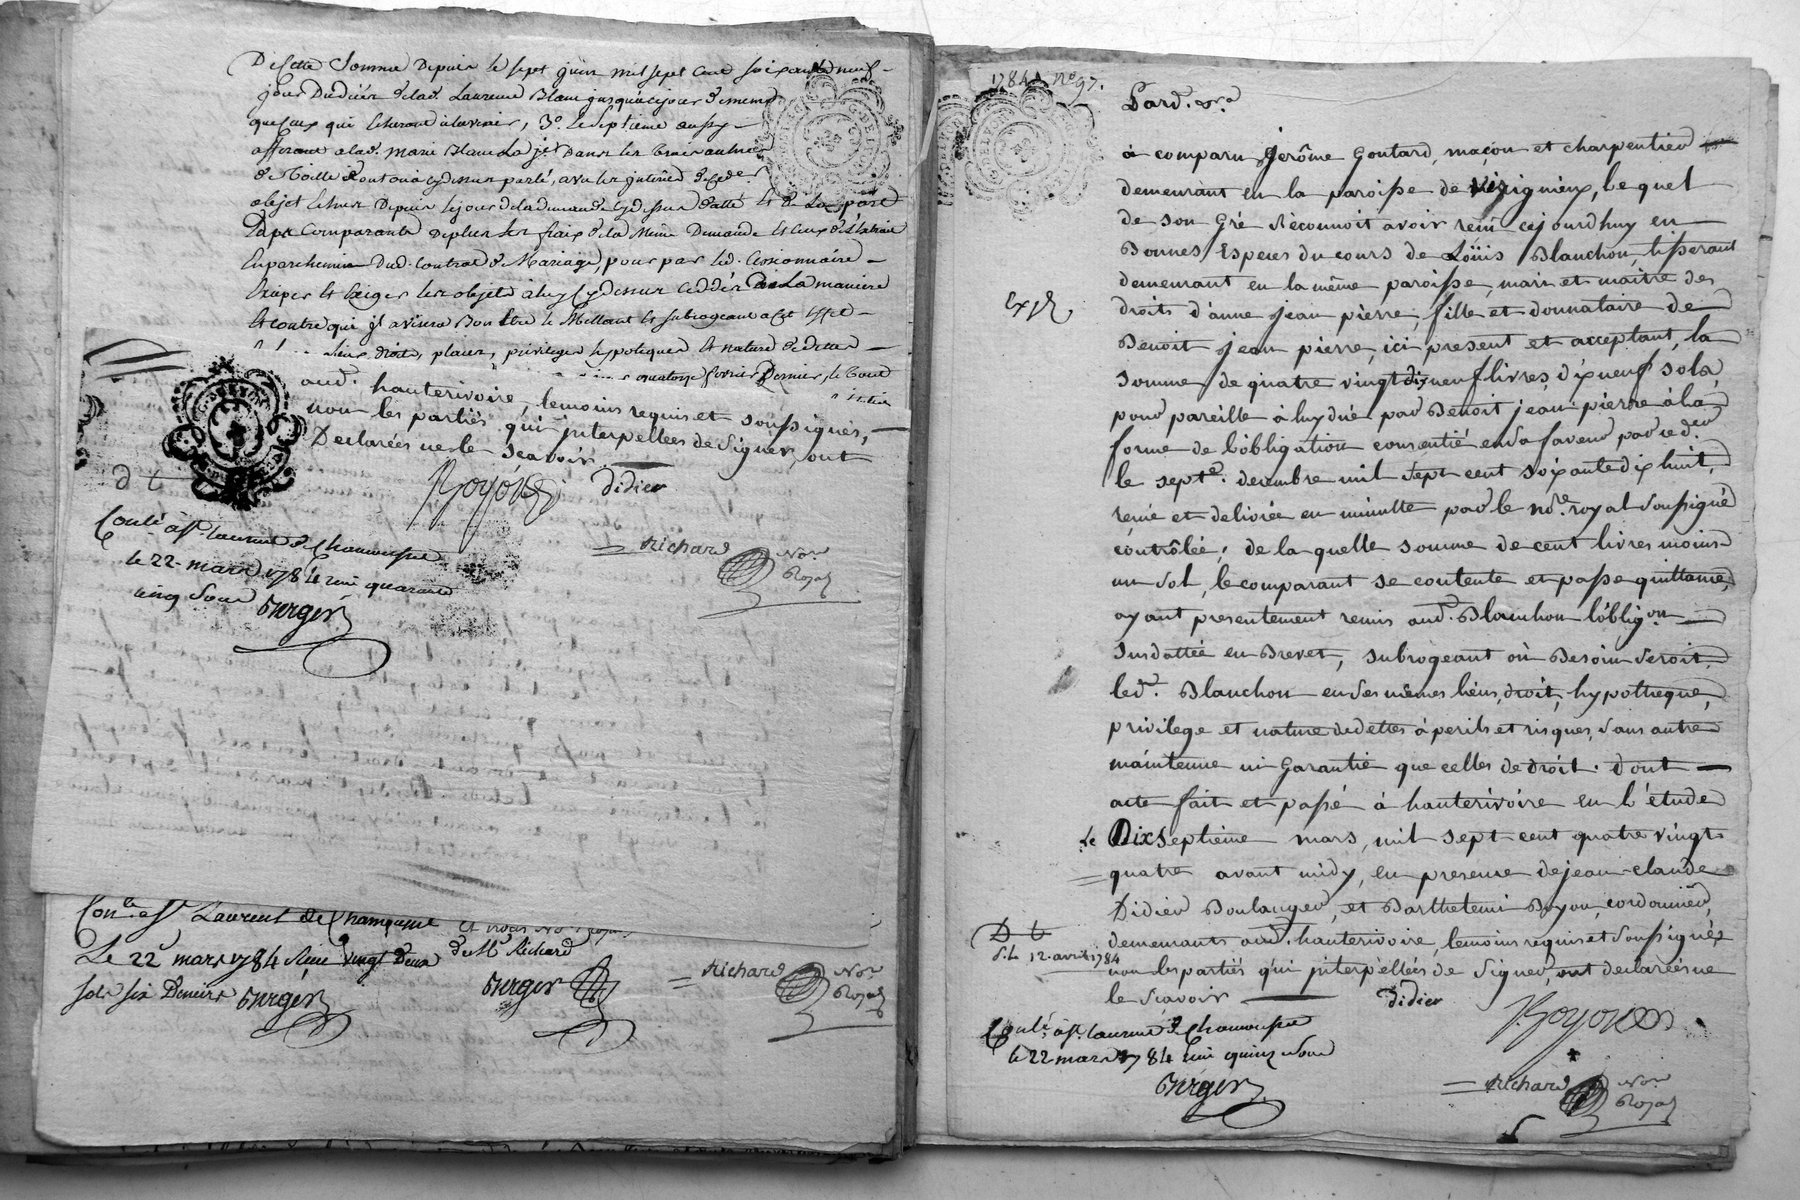 De cette Somme Depuis le sept juin mil sept cent soixante neuf
jour Du décés de lad. Laurence Blanc jusqu'a ce jour & memes
que ceux qui echerront a lavenir, 3º. le septieme aussy
afferant a lad. Marie Blanc Dans les trois aulnes
de Toille Dont on a cy dessus parlé, avec les interets de cedt
objet echus Depuis le jour de la demande cy dessus Datté et De La part
De la Comparante De plus les fraix de la Meme Demande et ceux de l'extrait
En parchemin Dud. Contrat de Mariage, pour par led. Cessionnaire
Exiger les objets a luy cy dessus ceddés De La maniere
et contre qui il avisera Bon Etre le Mettant et subrogeant a cet Effet
lieux, droits, places, privileges hypoteques et nature de dettes
quatorze fevrier Dernier, le tout
aud. hauterivoire, temoins requis et soussignés,
non les parties qui interpellées de signer, ont
Declarées ne le scavoir.
Boyon didier
D t
Richard Nore
Royal
Conlé à St. Laurent de Chamousset
le 22 mars 1784 reçu quarante
cinq sous Burger
Conle a St Laurent de Chamousset
Le 22 mars 1784 Reçu vingt Deux de Mr Richard
sols six Deniers Burger Burger
Richard Nore
Royal
1784 nº 97.
Pard. nre
à comparu jerôme Goutard, maçon et charpentier
demeurant en la paroisse de viricigneux, lequel
de son Gré Reconnoit avoir reçu cejourdhuy en
Bonnes Especes du cours de Loüis Blanchon, tisserant
demeurant en la même paroisse, mari et maitre des
Exp.
droits d'anne jean pierre, fille et donnataire de
Benoit jean pierre, ici present et acceptant, la
somme de quatre vingt dix neuf livres, dix neuf sols
pour pareille à luy duë par Benoit jean pierre à la
forme de l'obligation consentië en sa faveur par led.
le septe. decembre mil sept cent soixante dix huit,
reçuë et delivrée en minutte par le nore. royal soussigné
contrôlée; de la quelle somme de cent livres moins
un sol, le comparant se contente et passe quittance,
ayant presentement remis aud. Blanchon l'obligon
susdattée en Brevet, subrogeant où Besoin seroit
led. Blanchon en ses mêmes lieus, droit, hypotheque,
privilege et nature de dettes à perils et risques, sans autre
maintenue ni Garantie que celles de droit. dont
acte fait et passé à hauterivoire en l'étude
Le Dixseptieme mars, mil sept cent quatre vingt
quatre avant midy, en presence de jean claude
Didier Boulanger, et Barthelemi Boyon, cordonnier,
demeurants aud. hauterivoire, temoins requis et soussignés
D t
S.L. 12. avril 1784
non les parties qui interpellées de signer, ont declarées ne
le scavoir didier
Boyon
Conlé à St. Laurent de Chamousset
le 22 mars 1784 reçu quinze sous
Burger
Richard Nore
Royal